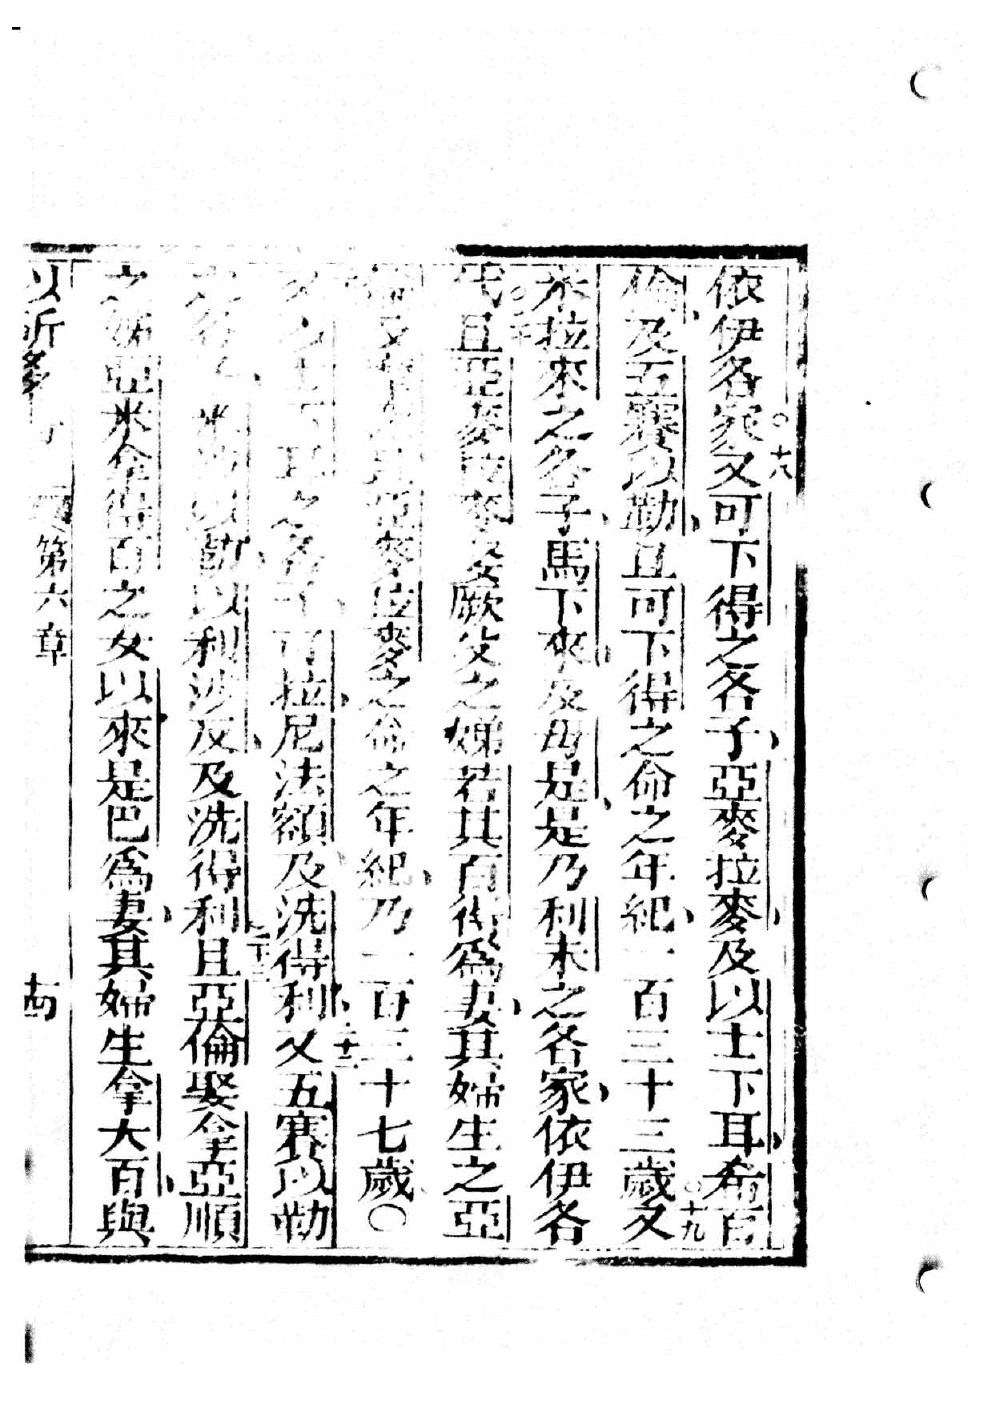 依伊各家又○十八可下得之各子亞麥拉麥及以士下耳希百
倫及五賽以勒且可下得之命之年紀一百三十三歲又○十九
米拉來之各子馬下來及母是是乃利未之各家依伊各
代○且亞麥拉麥娶厥父之娣若其百得爲妻其婦生之亞
亞麥拉麥之命之年紀乃一百三十七歲○
以士下耳之各子可拉尼法額及洗得利二十二又五賽以勒
以勒以利沙反及洗得利二十三且亞倫娶拿亞順
之姊亞米拿得百之女以來是巴爲妻其婦生拿大百與
以所多 第六章 十四